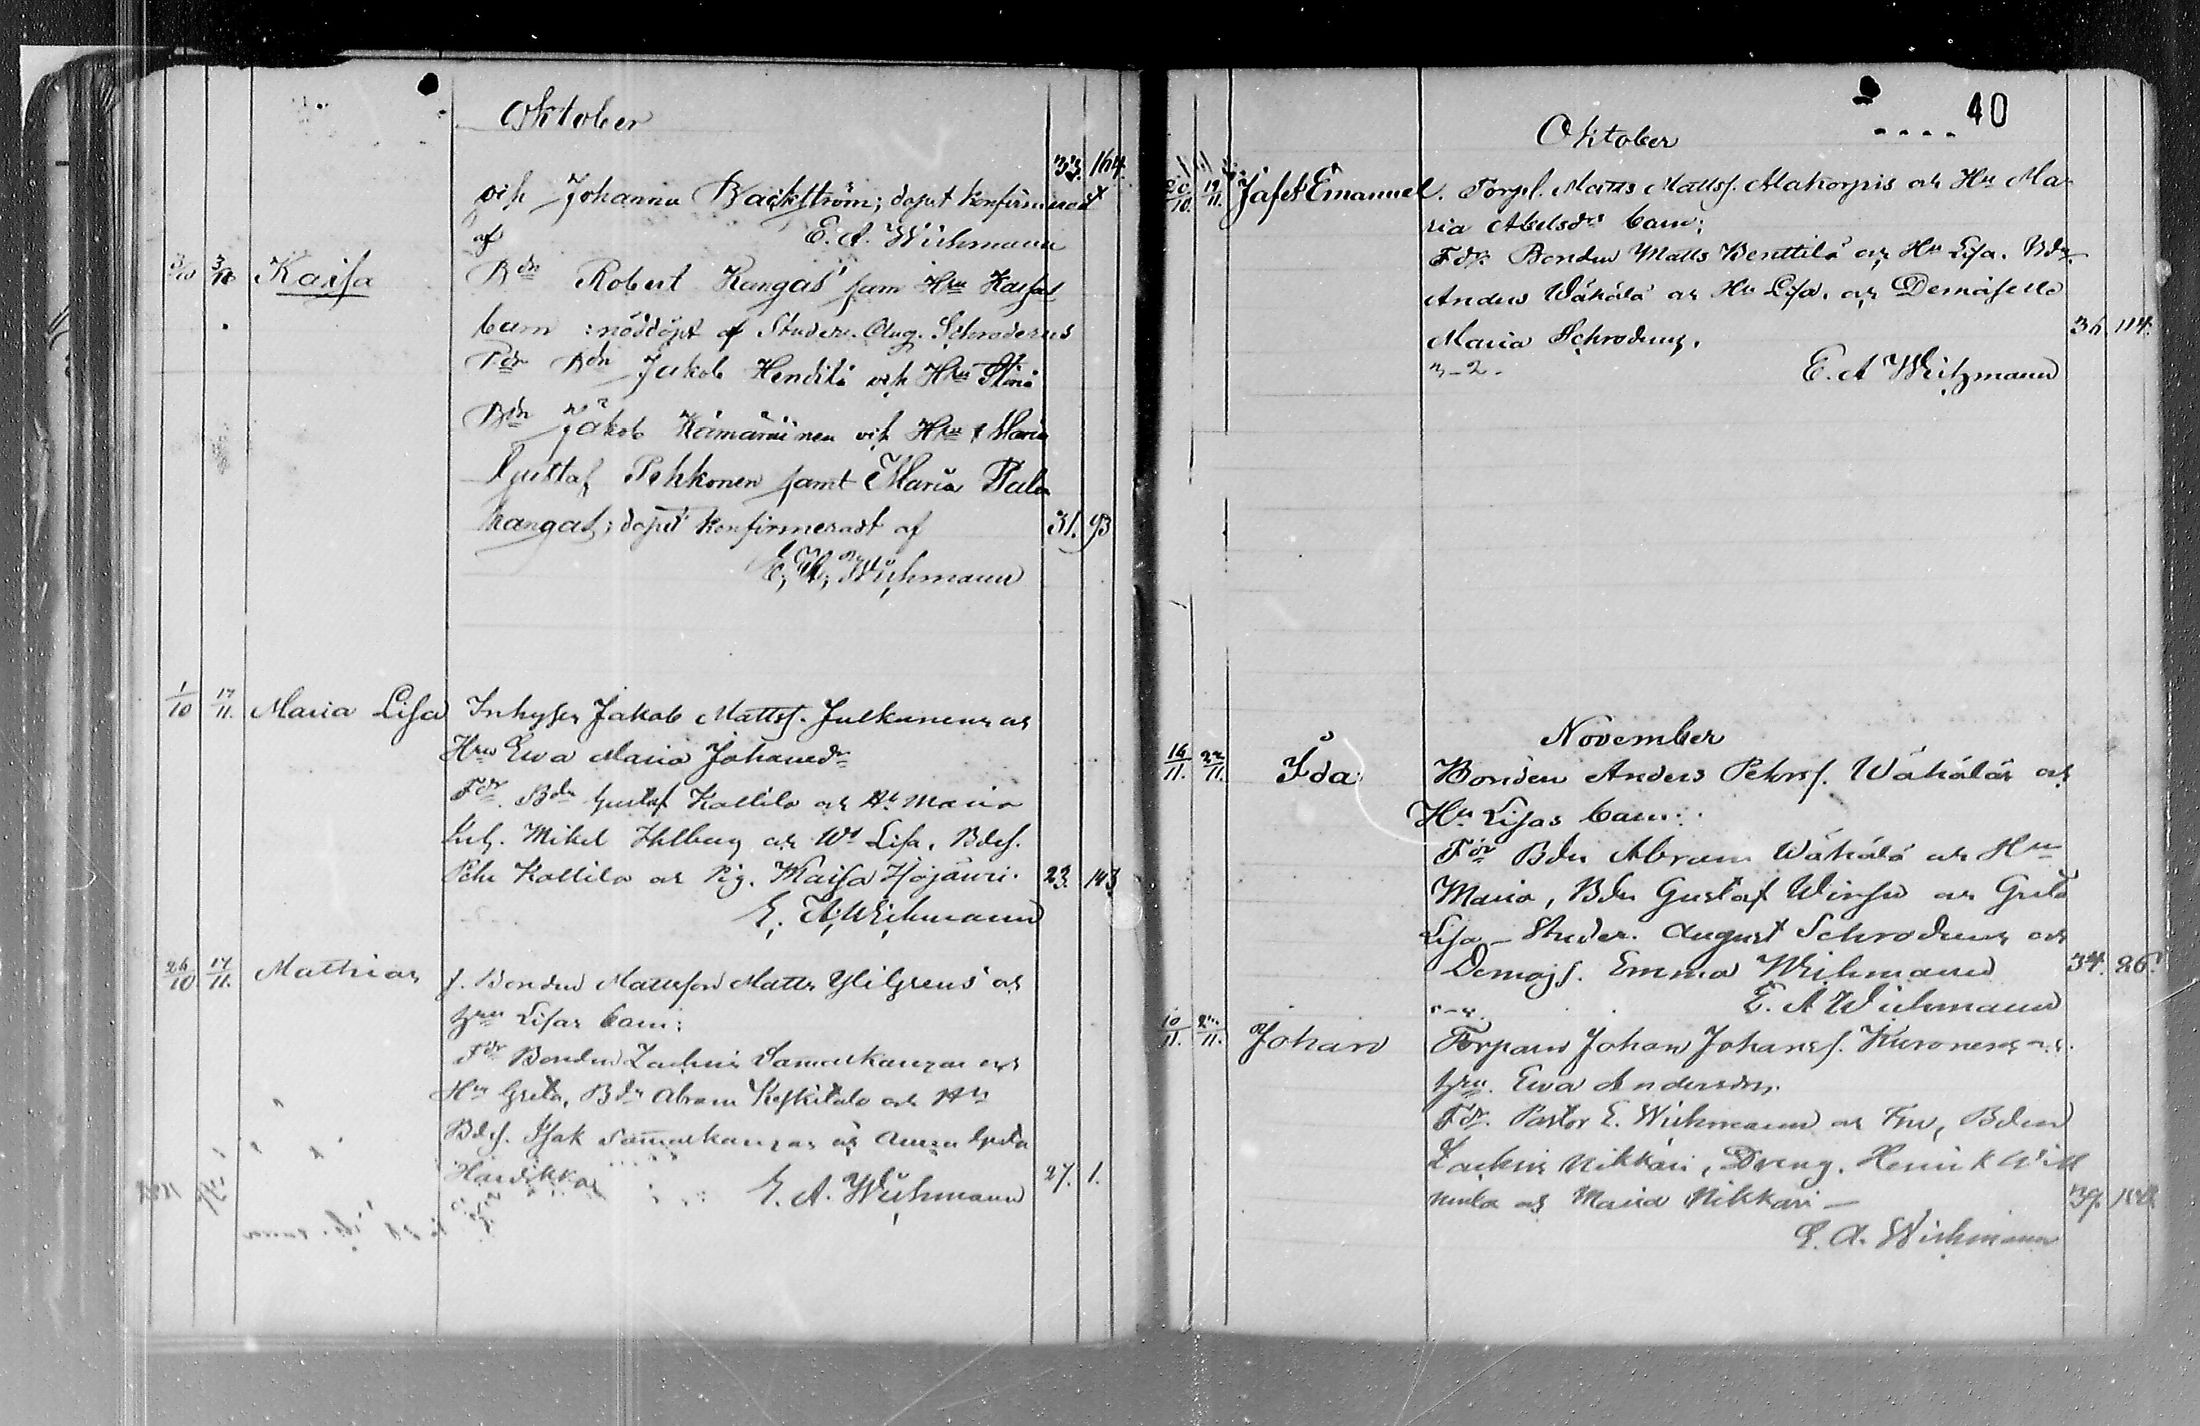 Oktober
33. 164
och Johanna Backström; dopet konfirmeradt
af E. A. Wichmann
3/10 3/10 Kaisa Bdn Robert Kangas' sam Hru Kaisas
barn: nöddöpt af Studer. Aug. Schroderus
Fdr Bdn Jakob Hendilä och Hru Maria
Bdn Jakob Kämäräinen och Hru Maria
Gustaf Pehkonen samt Maria Palo
kangas; dopet konfirmeradt af 31. 93
E. A. Wichmann
1/10 17/11. Maria Lisa Inhyses Jakob Mattss. Julkunens och
Hru Ewa Maria Johansdr
Fdr. Bdn Gustaf Kallila och Hu Maria
Inh. Mikel Hlberg och Wd Lisa, Bdes.
Pehr Kallila och Pig. Maisa Hojäwri. 23. 143
E. A. Wichmann
26/10 17/11. Mathias f. Bonden Mattsson Matts Yligrens och
hru Lisas barn:
Fdr Bonden Zachris Sammalkangas och
Hru Greta, Bdn Abram Keskitalo och Hru
Bdes. Isak Sammalkangas och Anna Greta
Hardikka 27. 1.
E. A. Wichmann
40
Oktober
20/10. 19/11. Jafet Emanuel. Torpl. Matts Mattss. Alakorpis och Hu Ma-
ria Abelsdrs barn:
Fdr. Bonden Matts Penttilä och Hu Lisa. Bdn
Anders Wähälä och Hu Lisa. och Demoiselle
Maria Schroderus. 36. 114.
n-2. E. A Wichmann
November
16/11. 22/11. Ida Bonden Anders Pehrss. Wähäläs och
Hu Lisas barn:
Fdr Bdn Abram Wähälä och Hru
Maria, Bdn Gustaf Wirsu och Greta
Lisa – Studer. August Schroderus och
Demojs. Emma Wichmann 34. 26.
E. A Wichmann
10/11. Johan Torparn Johan Johanss. Kuronens och
hru. Ewa Andersdrs.
Fdr. Pastor E. Wichmann och Fru, Bden
Zachris Nikkari, Dreng. Henrik Will
munla och Maria Nikkari –
E. A. Wichmann